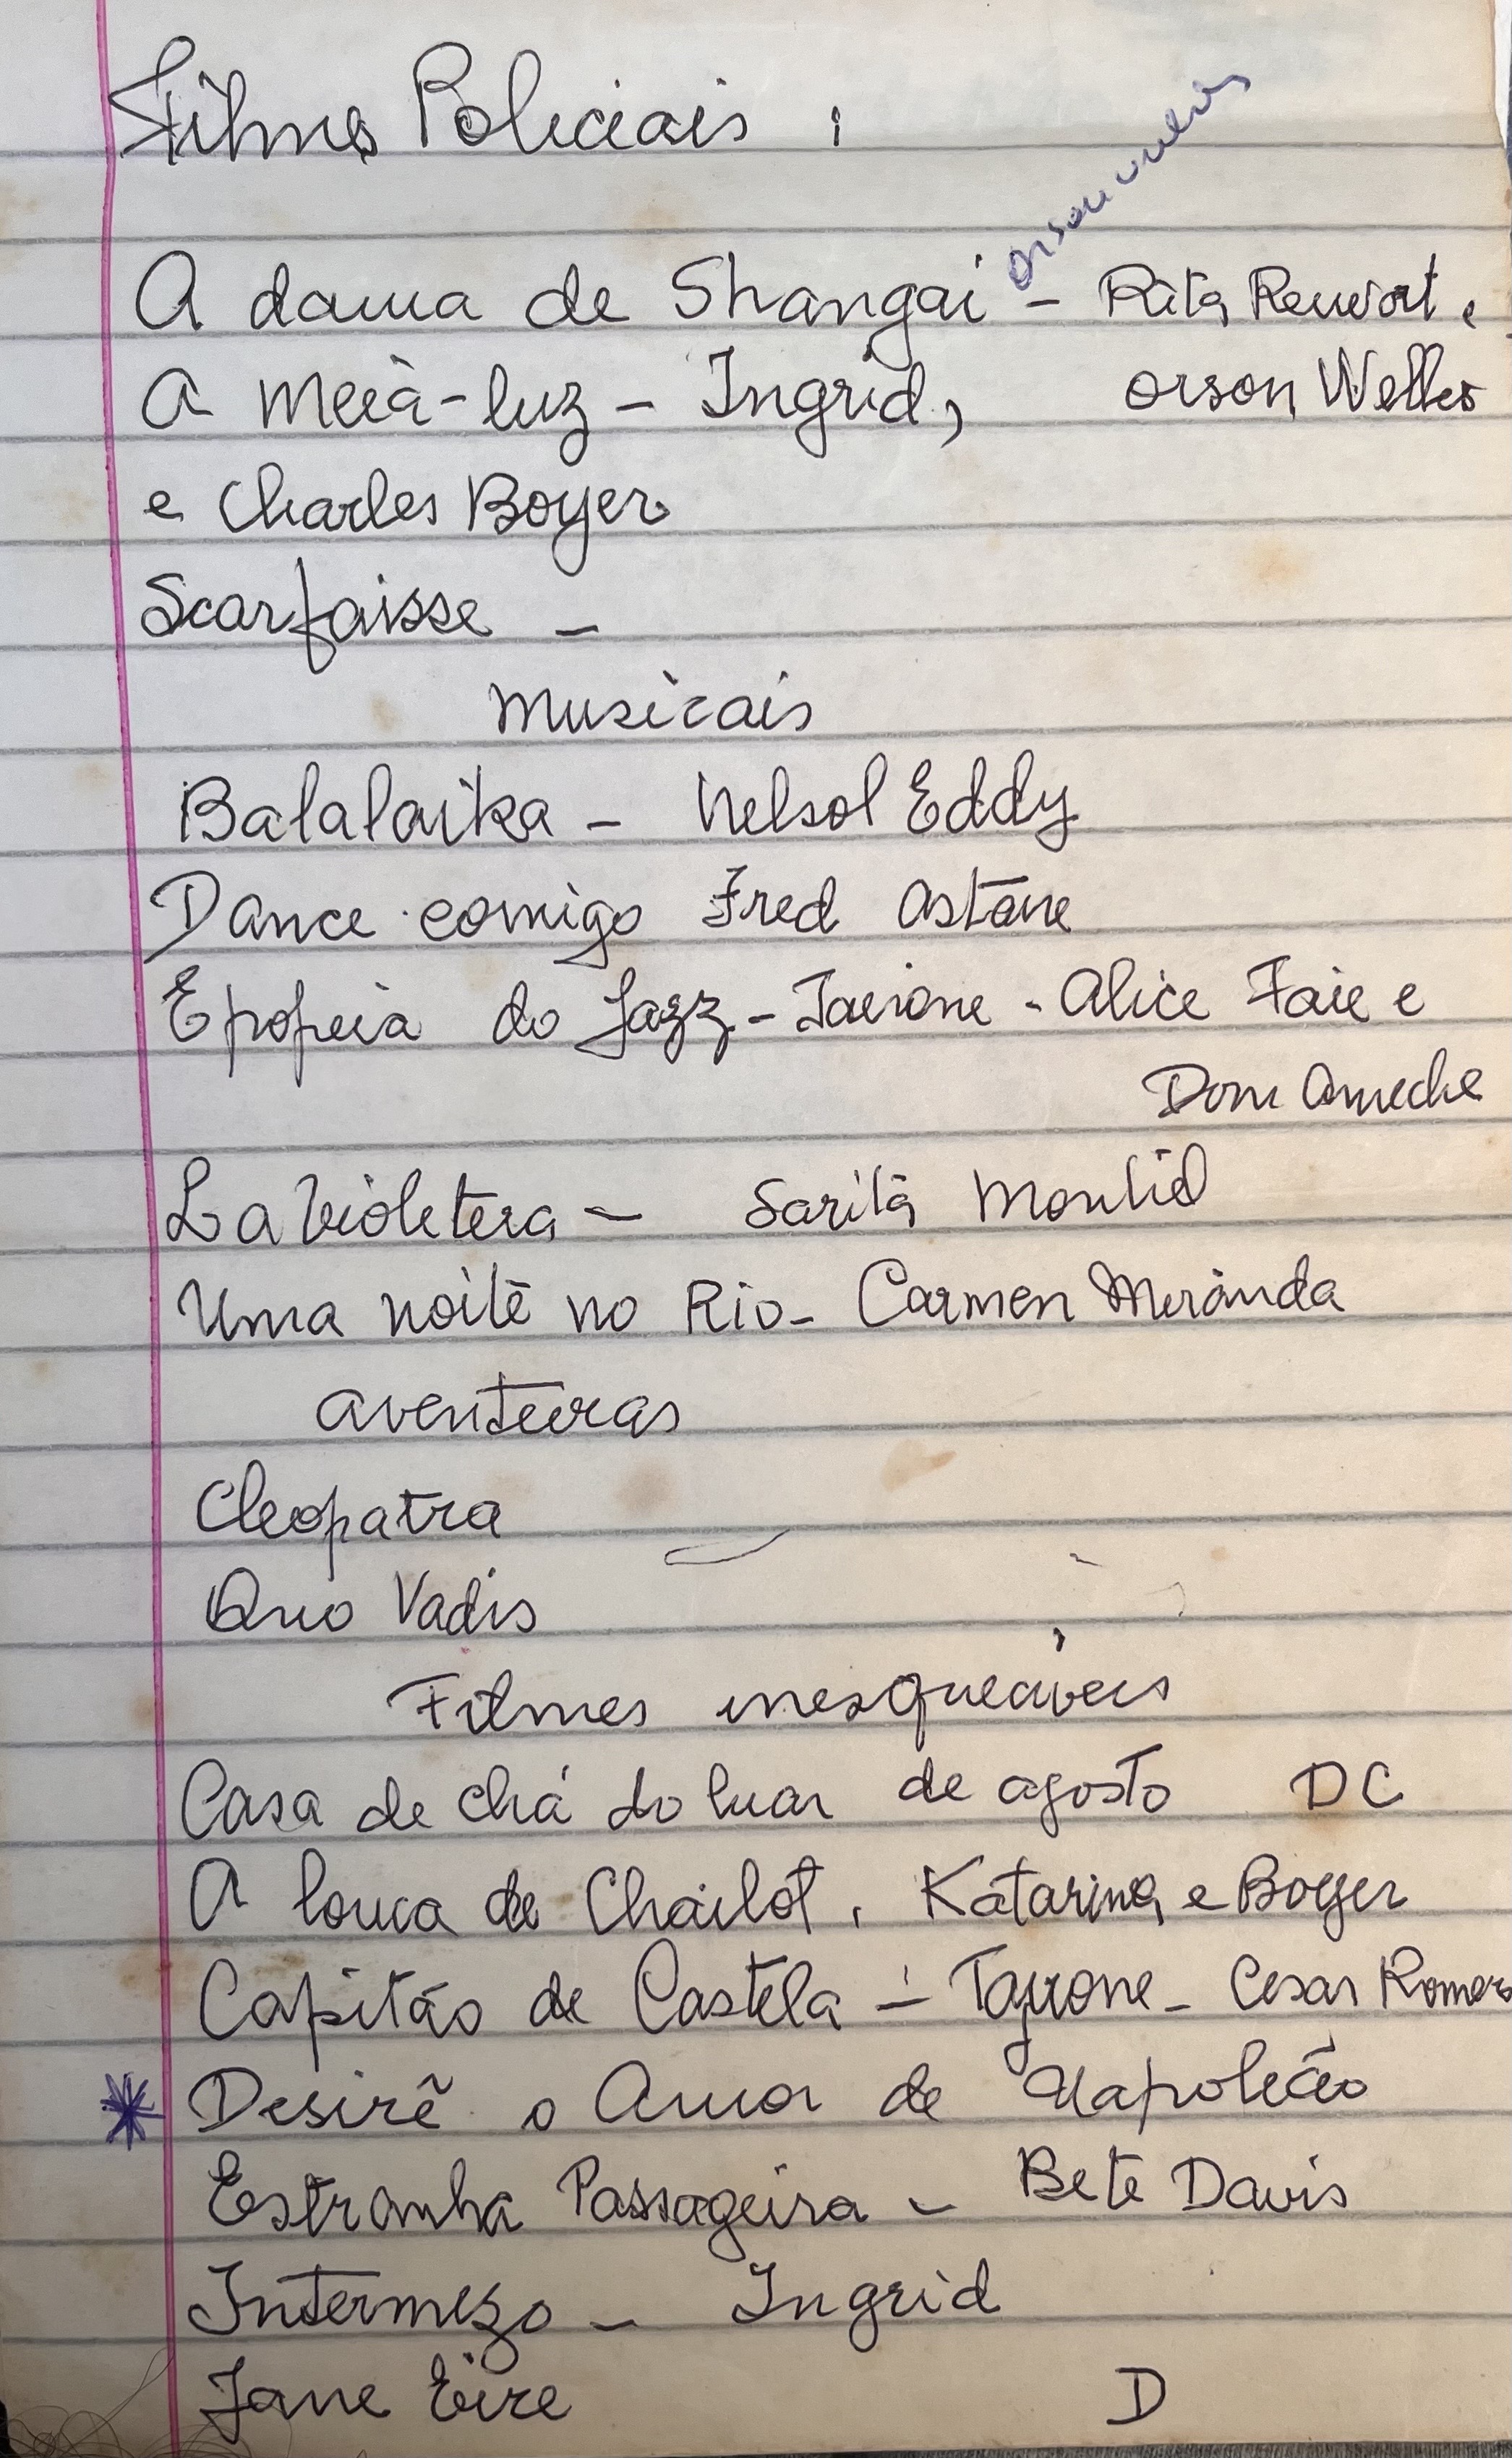 Filmes Policiais :
orson
A dama de Shangai - Rita e
A Meia-luz - Ingrid, orson Welles
e Charles Boyer
Scarfaisse -
Musicais
Balalaika - Nelsol Eddy
Dance comigo Fred
Epopeia do Jazz - - Alice Faie e
Dom Ameche
La Violetera - Sarita Montiel
Uma noite no Rio - Carmen Miranda
aventuras
Cleopatra
Quo Vadis
Filmes inesqueciveis
Casa de chá do luar de agosto DC
A louca de Chailot, Katarina e Boyer
Capitão de Castela - Tayrone - Cesar Romero
* Desirê o Amor de Napoleão
Estranha Passageira - Bete Davis
Intermezo - Ingrid
Jane Eire D